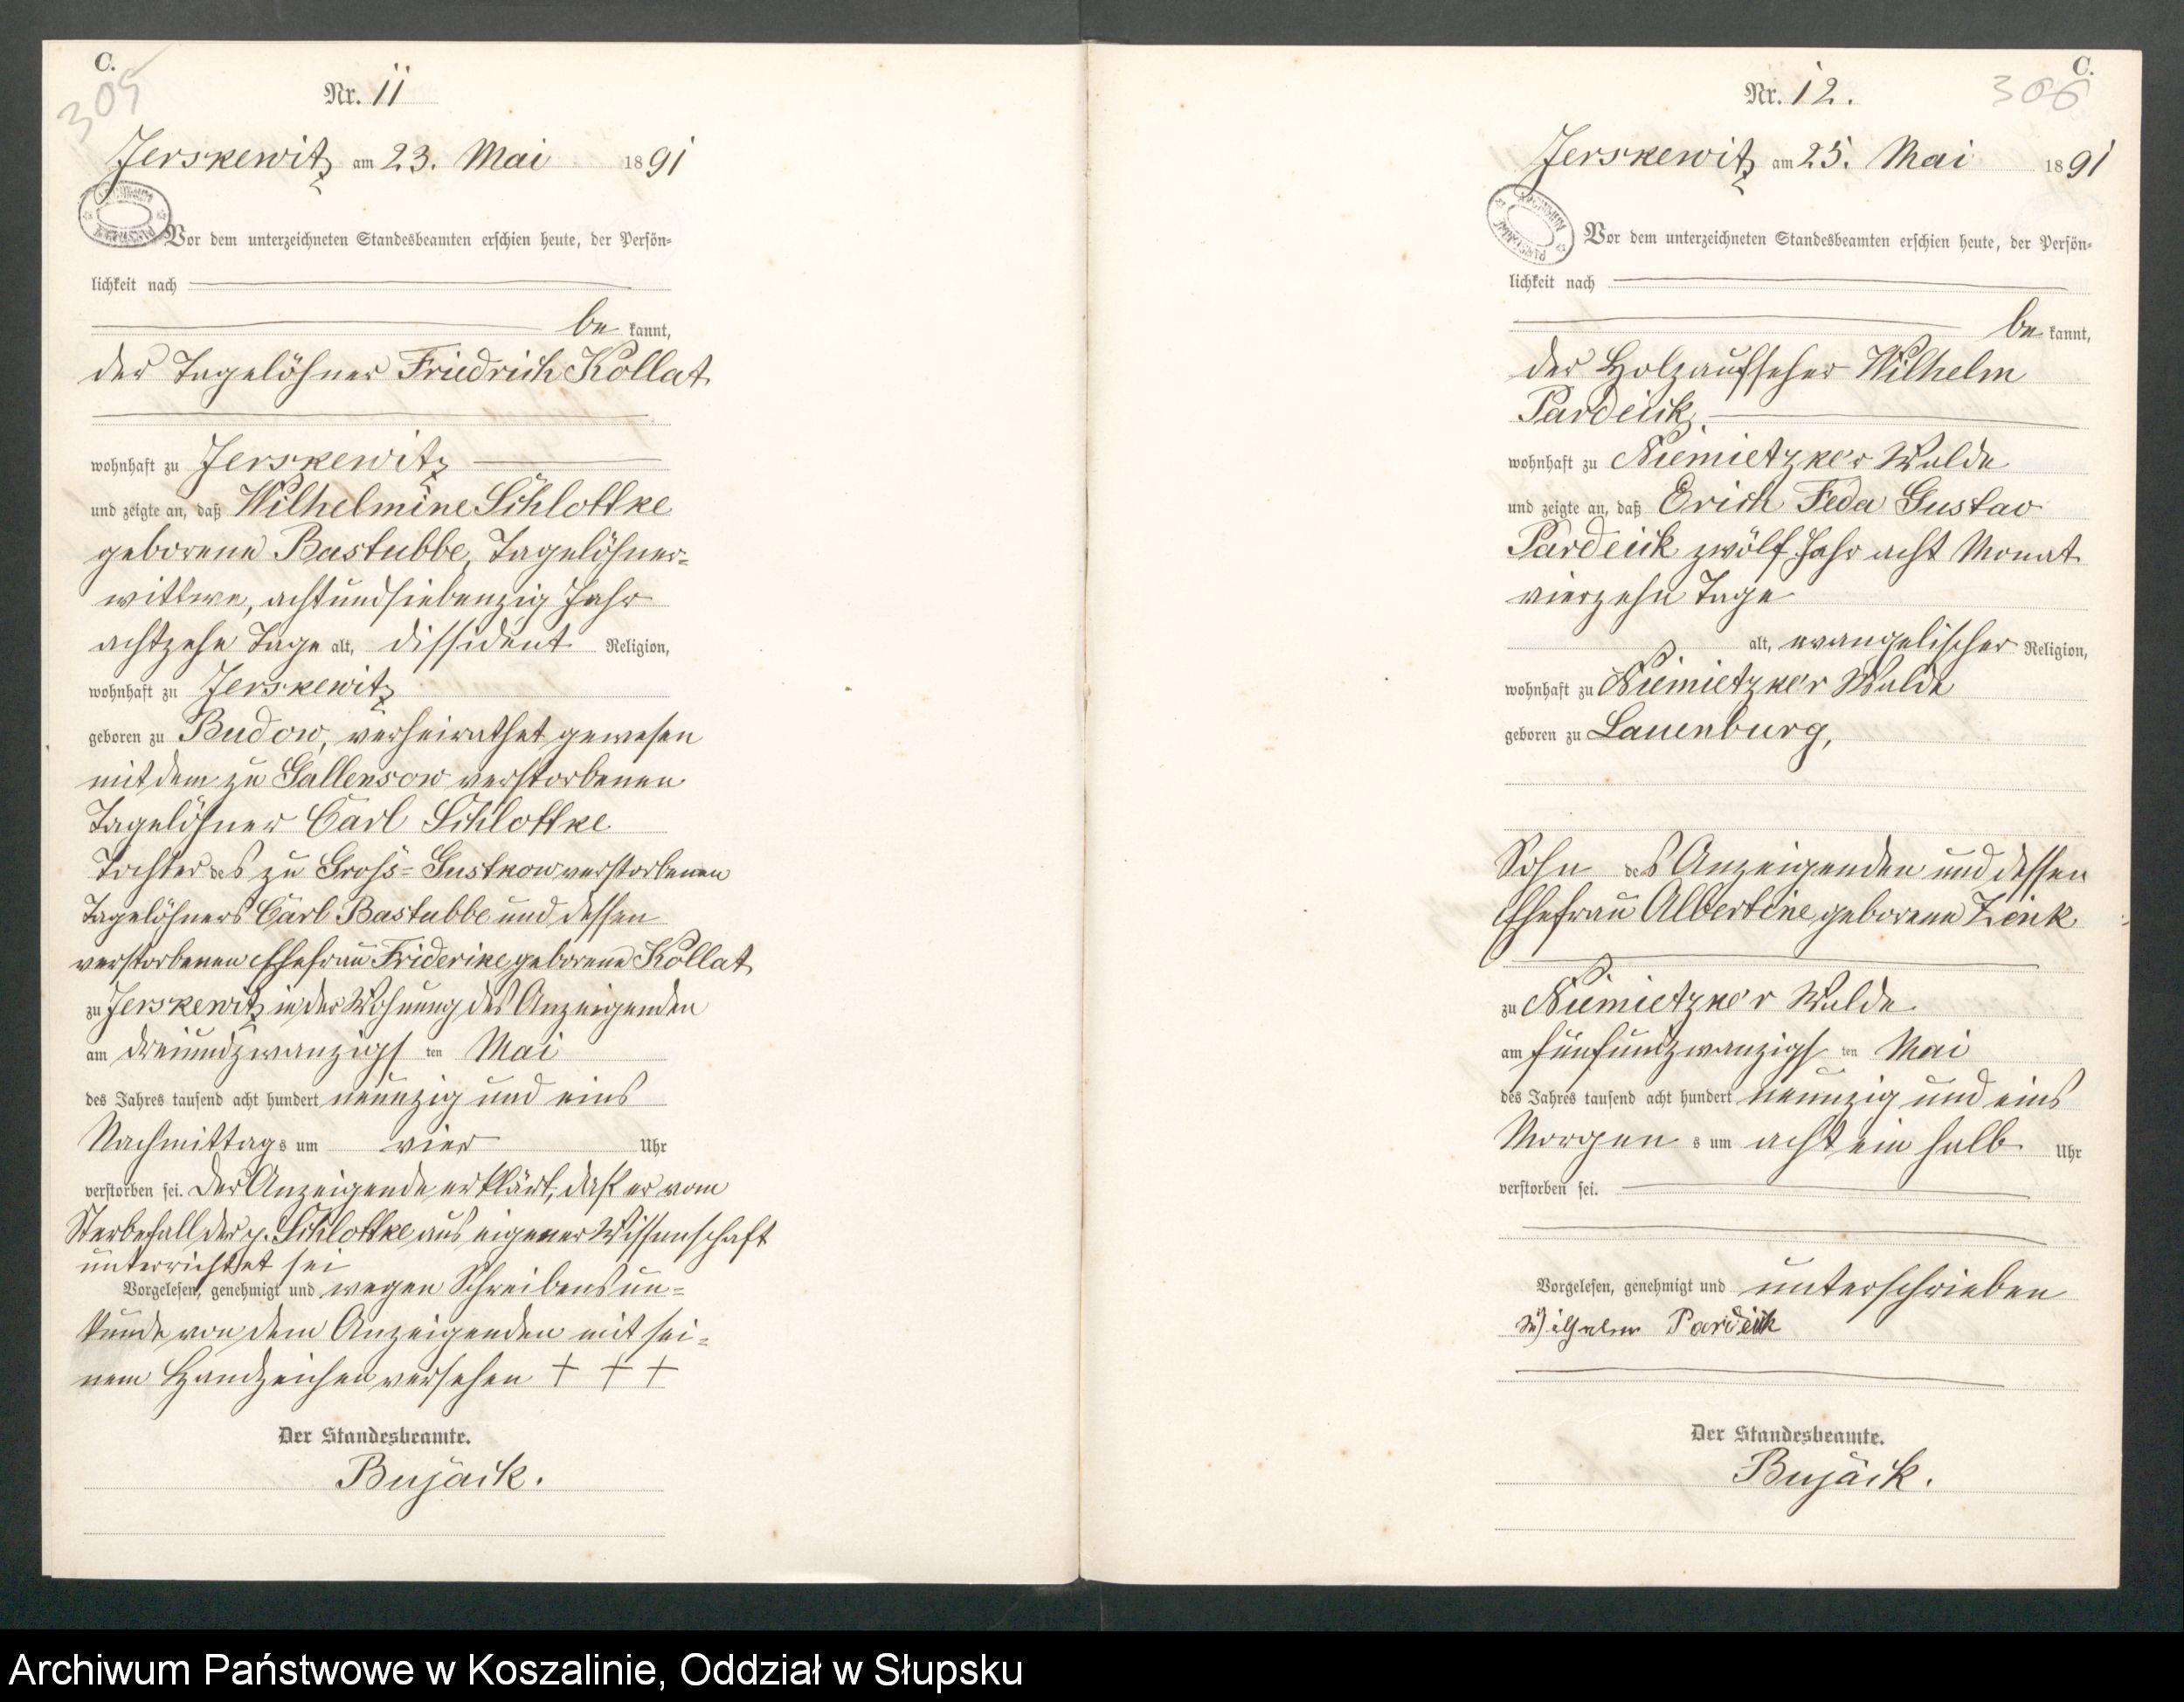 C.
305
Nr. 11
Jerskewitz am 23. Mai 1891
Vor dem unterzeichneten Standesbeamten erschien heute, der Persön-
lichkeit nach
be kannt,
der Tagelöhner Friedrich Kollat
wohnhaft zu Jerskewitz
und zeigte an, daß Wilhelmine Schlottke
geborene Bastubbe, Tagelöhner-
wittwe, achtundsiebenzig Jahr
achtzehn Tage alt, dissident Religion,
wohnhaft zu Jerskewitz
geboren zu Budow, verheirathet gewesen
mit dem zu Gallensow verstorbenen
Tagelöhner Carl Schlottke
Tochter des zu Groß-Gustkow verstorbenen
Tagelöhners Carl Bastubbe und dessen
verstorbenen Ehefrau Friderike geborene Kollat
zu Jerskewitz in der Wohnung des Anzeigenden
am dreiundzwanzigsten Mai
des Jahres tausend acht hundert neunzig und eins
Nachmittags um vier Uhr
verstorben sei. Der Anzeigende erklärt, daß er vom
Sterbefall der p. Schlottke aus eigener Wissenschaft
unterrichtet sei
Vorgelesen, genehmigt und wegen Schreibensun-
kunde von dem Anzeigenden mit sei-
nem Handzeichen versehen + + +
Der Standesbeamte.
Bujäck.
C.
306
Nr. 12.
Jerskewitz am 25. Mai 1891
Vor dem unterzeichneten Standesbeamten erschien heute, der Persön-
lichkeit nach
be kannt,
der Holzaufseher Wilhelm
Pardeick,
wohnhaft zu Niemietzke'r Walde
und zeigte an, daß Erich Feda Gustav
Pardeick zwölf Jahr acht Monat
vierzehn Tage
alt, evangelischer Religion,
wohnhaft zu Niemietzker Walde
geboren zu Lauenburg,
Sohn des Anzeigenden und dessen
Ehefrau Albertine geborene Zink
zu Niemietzke'r Walde
am fünfundzwanzigsten Mai
des Jahres tausend acht hundert neunzig und eins
Morgens um acht ein halb Uhr
verstorben sei.
Vorgelesen, genehmigt und unterschrieben
Wilhelm Pardeik
Der Standesbeamte.
Bujäck.
Archiwum Państwowe w Koszalinie, Oddział w Słupsku